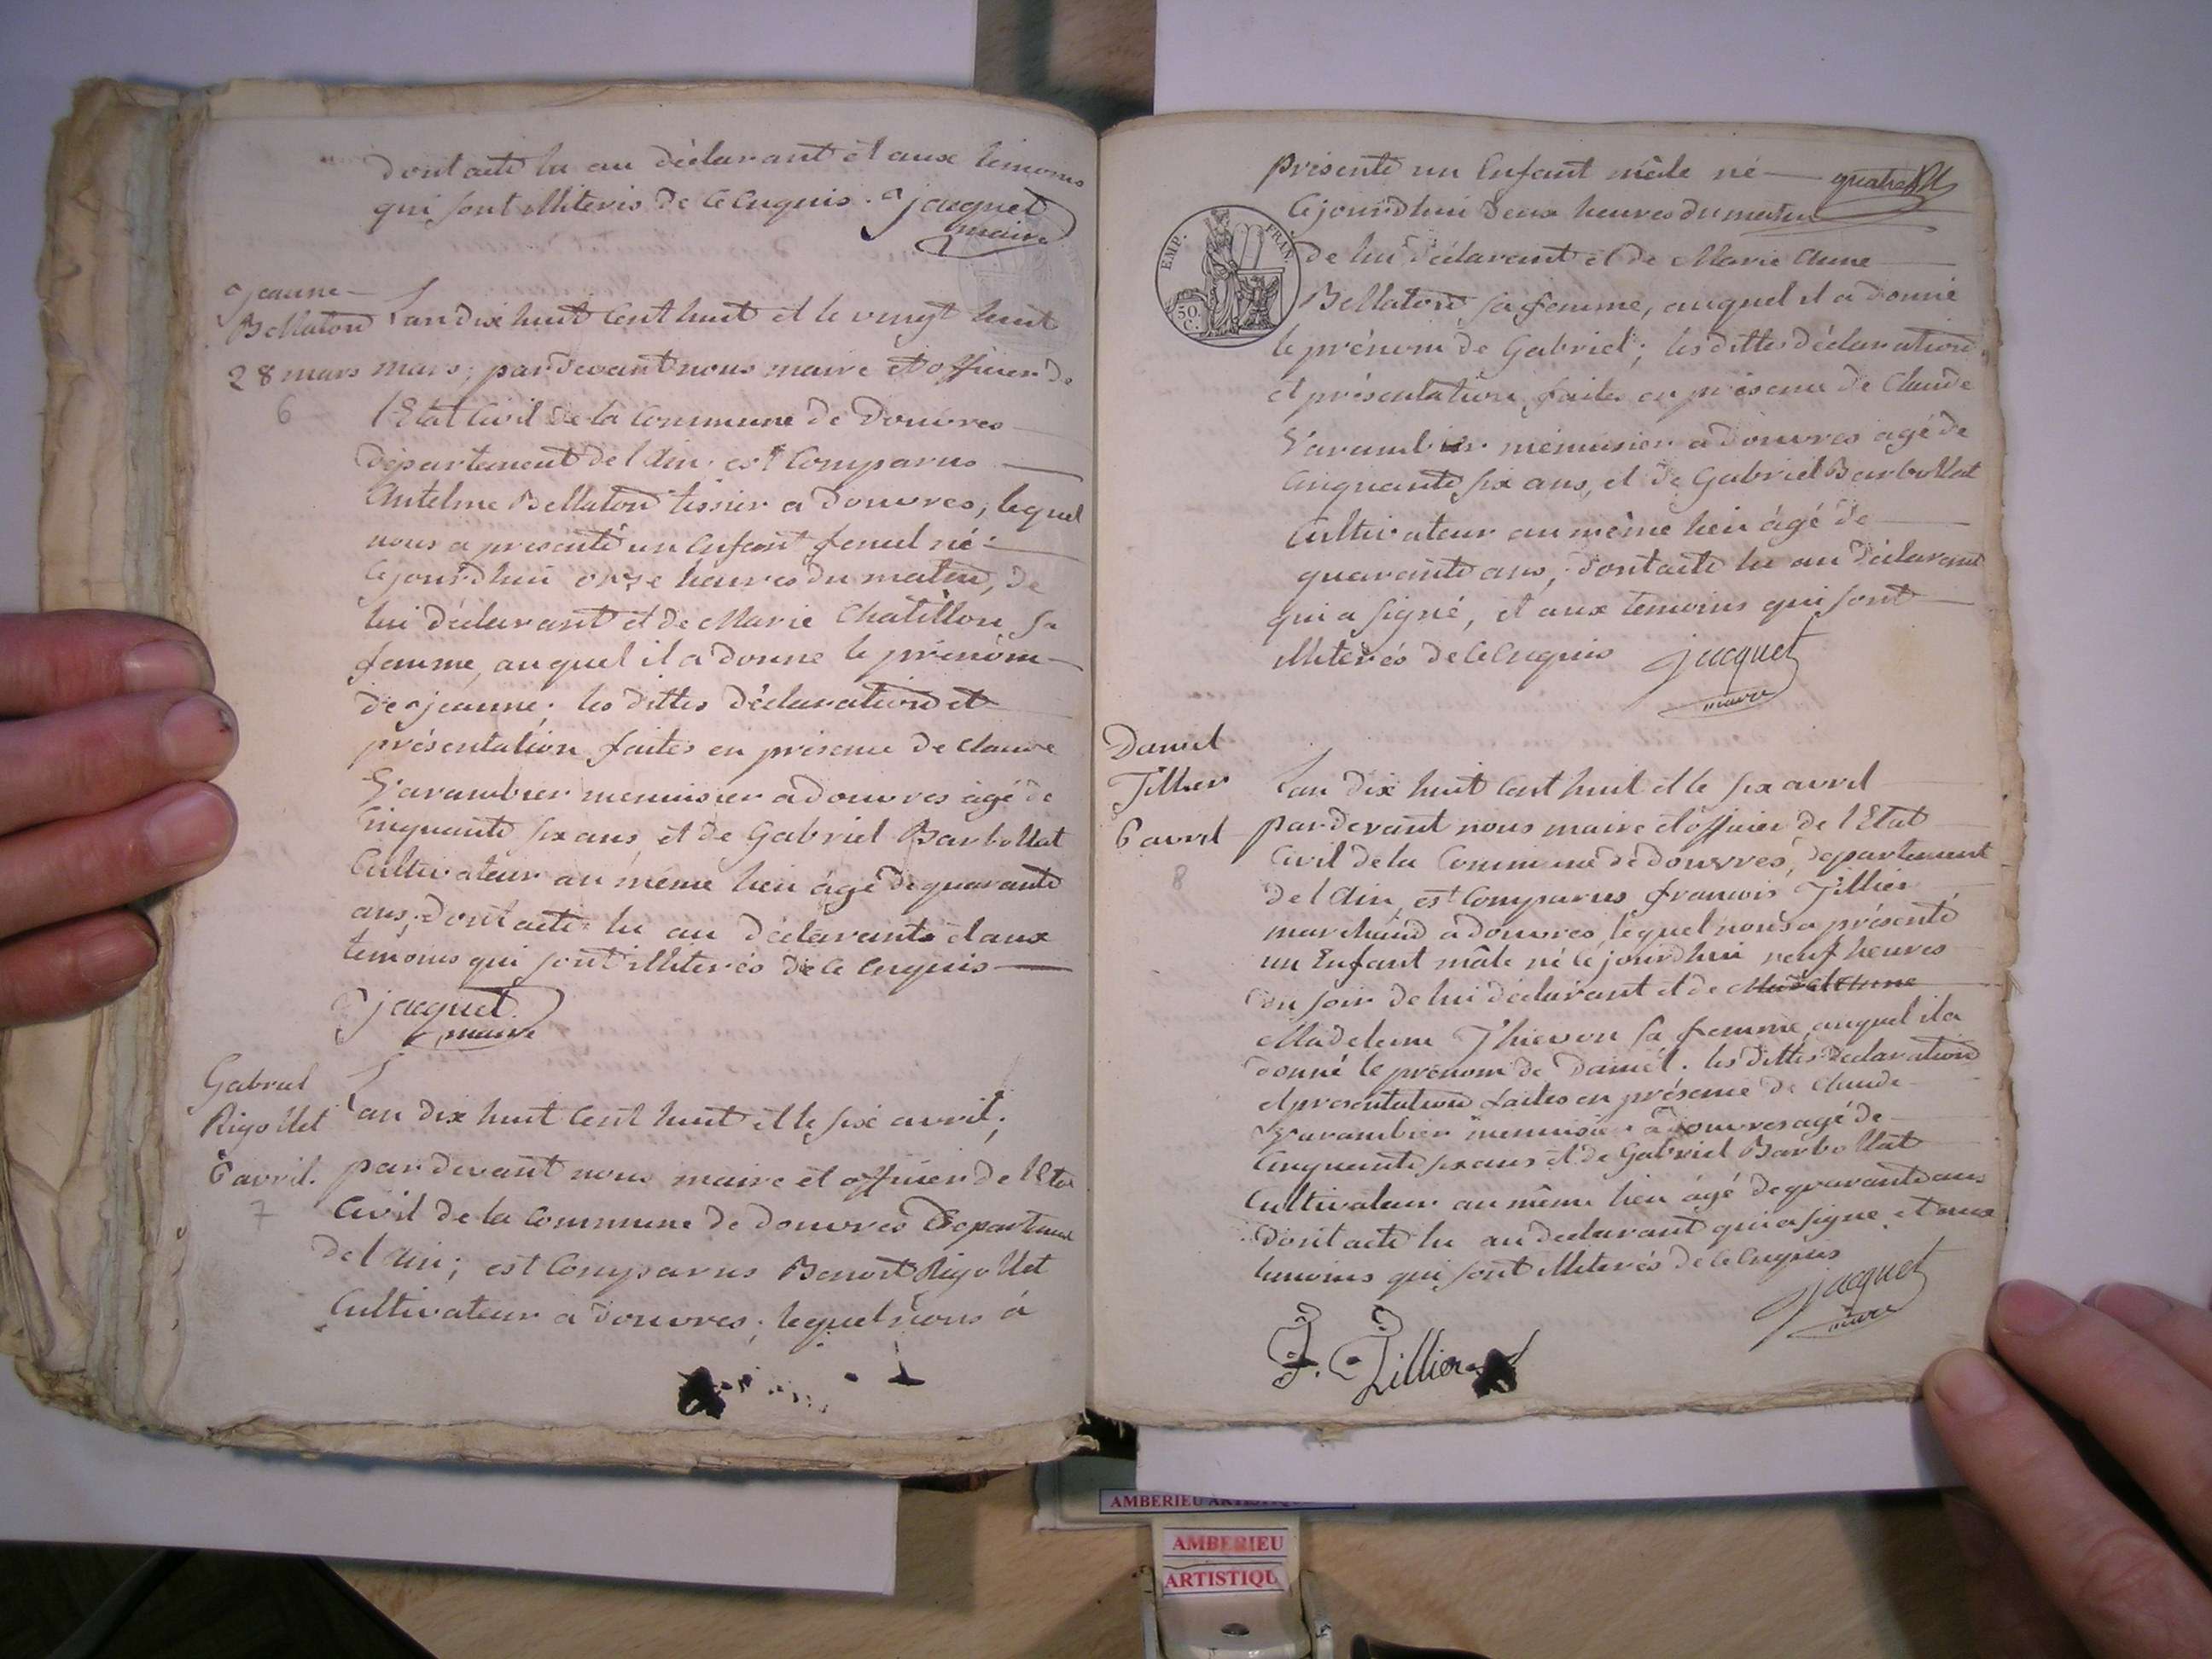 dont acte lu au déclarant et aux temoins
qui sont illiterés de ce enquis. jacquet
maire
jeanne
Bellaton
28 mars
6
Lan dix huit cent huit et le vingt huit
mars; pardevant nous maire et officier de
l'Etat Civil de la Commune de Douvres
département de l'ain est Comparus
Antelme Bellaton tissier a douvres, lequel
nous a presenté un enfant femel né
Cejourdhui onze heures du matin, de
lui déclarant et de Marie Chatillon sa
femme, auquel il a donne le prénom
de jeanne. les dittes déclaration et
présentation faites en présence de claude
Varambier menuisier a douvres agé de
Cinquante six ans, et de Gabriel Barbollat
Cultivateur au même lieu âgé de quarante
ans, dont acte lu au déclarant et aux
temoins qui sont illiterés de ce enquis
jacquet
maire
Gabriel
Rigollet
6 avril.
7
Lan dix huit cent huit et le six avril;
pardevant nous maire et officier de l'Eta
Civil de la Commune de douvres Departeme
de l'ain; est Comparus Benoit Rigollet
Cultivateur a douvres; lequel nous à
présenté un Enfant mâle né quatre
Cejourdhui deux heures du matin
de lui déclarant et de Marie Anne
Bellaton sa femme, auquel il a donné
le prénom de Gabriel; les dittes déclaration
et présentation faites en présence de Claude
Varambier menuisier a douvres agé de
Cinquante six ans, et de Gabriel Barbollat
Cultivateur au même lieu âgé de
quarante ans, dont acte lu au déclarant
qui a signé, et aux temoins qui sont
illiterés de ce enquis jacquet
maire
EMP. FRAN.
50. C.
Daniel
Tillier
6 avril
8
Lan dix huit cent huit et le six avril
pardevant nous maire et officier de l'Etat
Civil de la Commune de douvres, departement
de l'Ain, est Comparus francois Tillier
marchand a douvres, lequel nous a présenté
un Enfant mâle né Cejourdhui neuf heures
du soir de lui déclarant et de
Madeleine Thievon sa femme, auquel il a
donné le prénom de Daniel. les dittes declaration
et presentation faites en présence de Claude
Varambier menuisier a douvres agé de
Cinquante six ans et de Gabriel Barbollat
Cultivateur au même lieu âgé de quarante ans
dont acte lu au declarant qui a signe et aux
temoins qui sont illiterés de ce enquis
jacquet
maire
F. Tillier
AMBERIEU ARTISTIQUE
AMBERIEU
ARTISTIQU